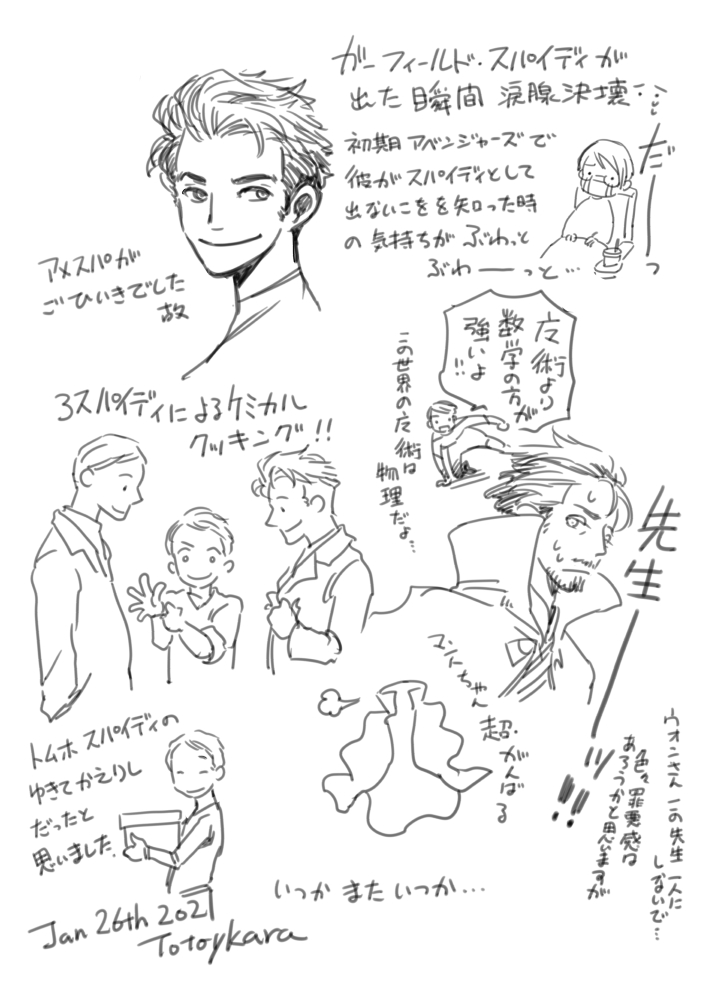 ガーフィールド・スパイディが
出た瞬間 涙腺決壊…
だーーっ
初期アベンジャーズで
彼がスパイディとして
出ないこをを知った時
の気持ちが ぶわっと
ぶわーーっと…
アメスパが
ごひいきでした
故
魔術より
数学の方が
強いよ!!
この世界の魔術は
物理だよ…
3スパイディによるケミカル
クッキング!!
先生ーーッ!!
マントちゃん
超・がんばる
ウォンさん この先生 一人に
しないで…
色々罪悪感は
あろうかと思いますが
トムホ スパイディの
ゆきてかえりし
だったと
思いました.
いつか また いつか…
Jan 26th 2021
Totoykara